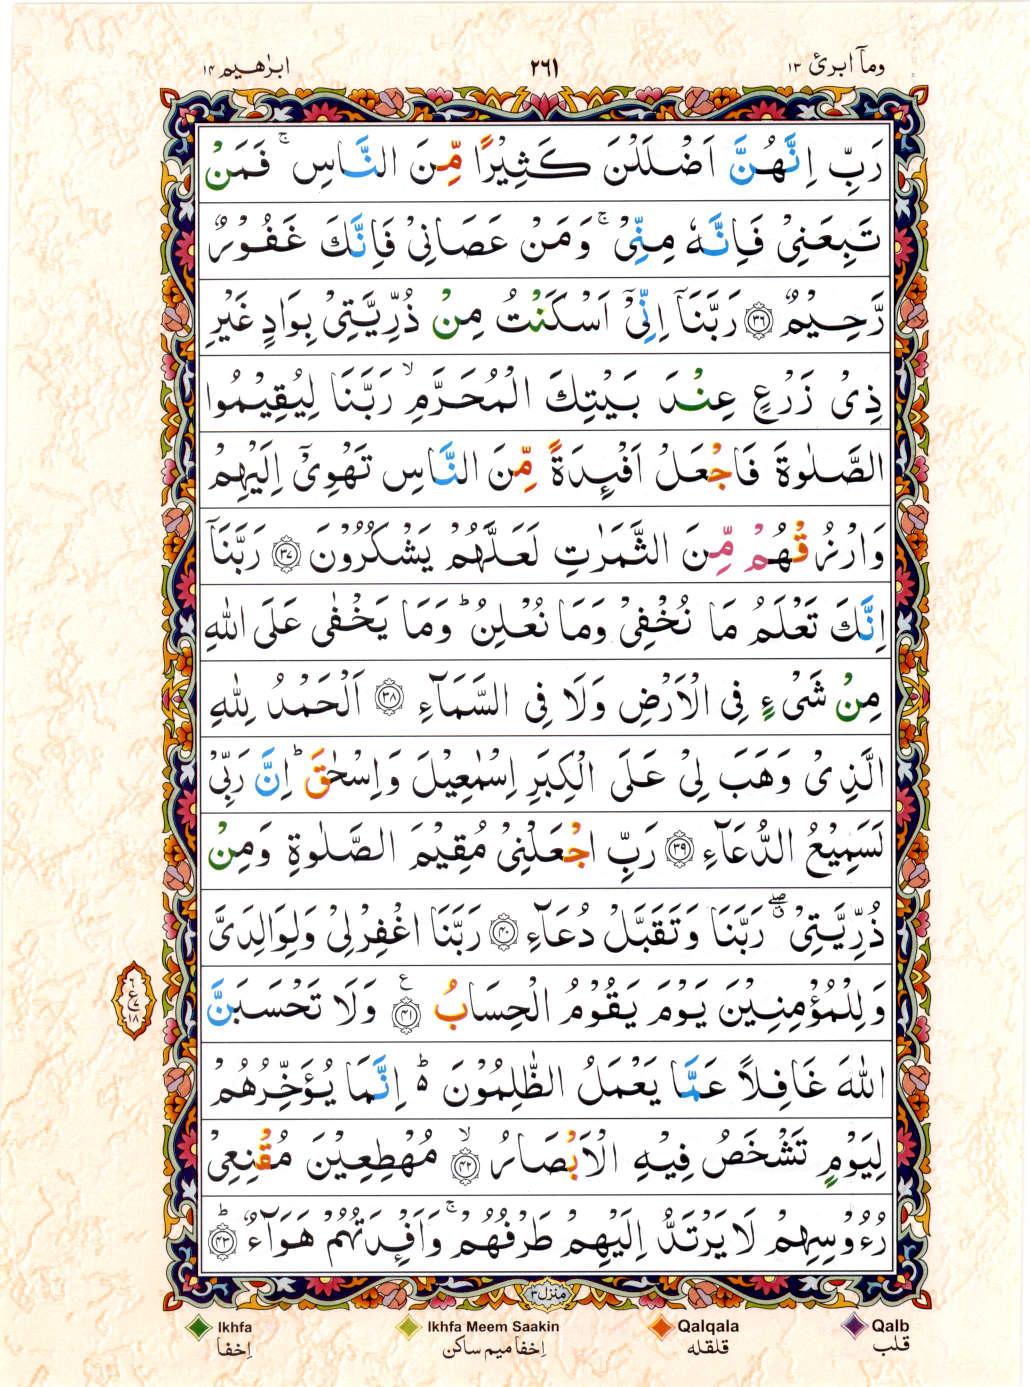 وما ابرئ ١٣
٢٦١
ابرٰهيم ١٤
رَبِّ اِنَّهُنَّ اَضْلَلْنَ كَثِيْرًا مِّنَ النَّاسِ ۚ فَمَنْ
تَبِعَنِيْ فَاِنَّهٗ مِنِّيْ ۚ وَمَنْ عَصَانِيْ فَاِنَّكَ غَفُوْرٌ
رَّحِيْمٌ ﴿۳۶﴾ رَبَّنَاۤ اِنِّيْۤ اَسْكَنْتُ مِنْ ذُرِّيَّتِيْ بِوَادٍ غَيْرِ
ذِيْ زَرْعٍ عِنْدَ بَيْتِكَ الْمُحَرَّمِ ۙ رَبَّنَا لِيُقِيْمُوا
الصَّلٰوةَ فَاجْعَلْ اَفْئِدَةً مِّنَ النَّاسِ تَهْوِيْۤ اِلَيْهِمْ
وَارْزُقْهُمْ مِّنَ الثَّمَرٰتِ لَعَلَّهُمْ يَشْكُرُوْنَ ﴿۳۷﴾ رَبَّنَاۤ
اِنَّكَ تَعْلَمُ مَا نُخْفِيْ وَمَا نُعْلِنُ ؕ وَمَا يَخْفٰى عَلَى اللّٰهِ
مِنْ شَيْءٍ فِي الْاَرْضِ وَلَا فِي السَّمَآءِ ﴿۳۸﴾ اَلْحَمْدُ لِلّٰهِ
الَّذِيْ وَهَبَ لِيْ عَلَى الْكِبَرِ اِسْمٰعِيْلَ وَاِسْحٰقَ ؕ اِنَّ رَبِّيْ
لَسَمِيْعُ الدُّعَآءِ ﴿۳۹﴾ رَبِّ اجْعَلْنِيْ مُقِيْمَ الصَّلٰوةِ وَمِنْ
ذُرِّيَّتِيْ ۖ ۗ رَبَّنَا وَتَقَبَّلْ دُعَآءِ ﴿۴۰﴾ رَبَّنَا اغْفِرْ لِيْ وَلِوَالِدَيَّ
وَلِلْمُؤْمِنِيْنَ يَوْمَ يَقُوْمُ الْحِسَابُ ﴿۴۱﴾ وَلَا تَحْسَبَنَّ
اللّٰهَ غَافِلًا عَمَّا يَعْمَلُ الظّٰلِمُوْنَ ؕ اِنَّمَا يُؤَخِّرُهُمْ
لِيَوْمٍ تَشْخَصُ فِيْهِ الْاَبْصَارُ ﴿۴۲﴾ۙ مُهْطِعِيْنَ مُقْنِعِيْ
رُءُوْسِهِمْ لَا يَرْتَدُّ اِلَيْهِمْ طَرْفُهُمْ ۚ وَاَفْئِدَتُهُمْ هَوَآءٌ ﴿۴۳﴾ؕ
منزل ۳
Ikhfa
Ikhfa Meem Saakin
Qalqala
Qalb
اِخفا
اِخفا ميم ساكن
قلقله
قلب